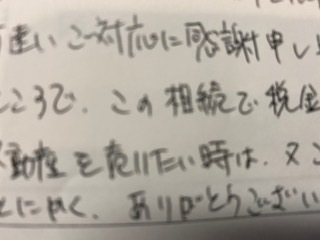 速い ご対応に感謝申し
ころで、この相続で税金
動産を売りたい時は、又こ
とにかく、ありがとうござい